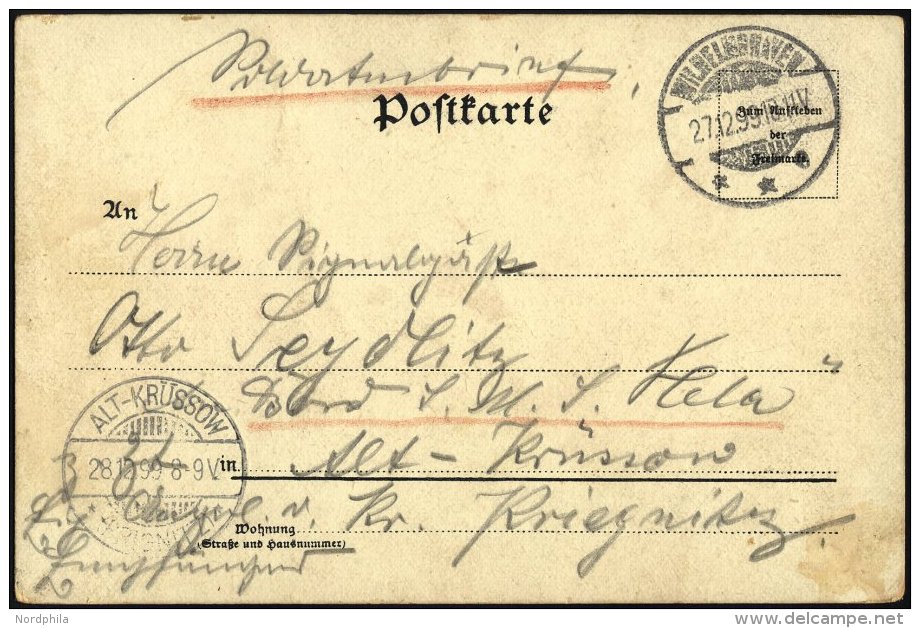 Soldatenbrief
Postkarte
WILHELMSHAVEN
27.12.99.
Zum Aufkleben
der
Freimarke.
An
Herrn Signalgast
Otto Seydlitz
Bord S. M. S. "Hela"
ALT-KRÜSSOW
28.12.99 8-9V.
in
Alt-Krüssow
v. Kr. Priegnitz.
Wohnung
(Straße und Hausnummer)
Nordphila
delcampe.net